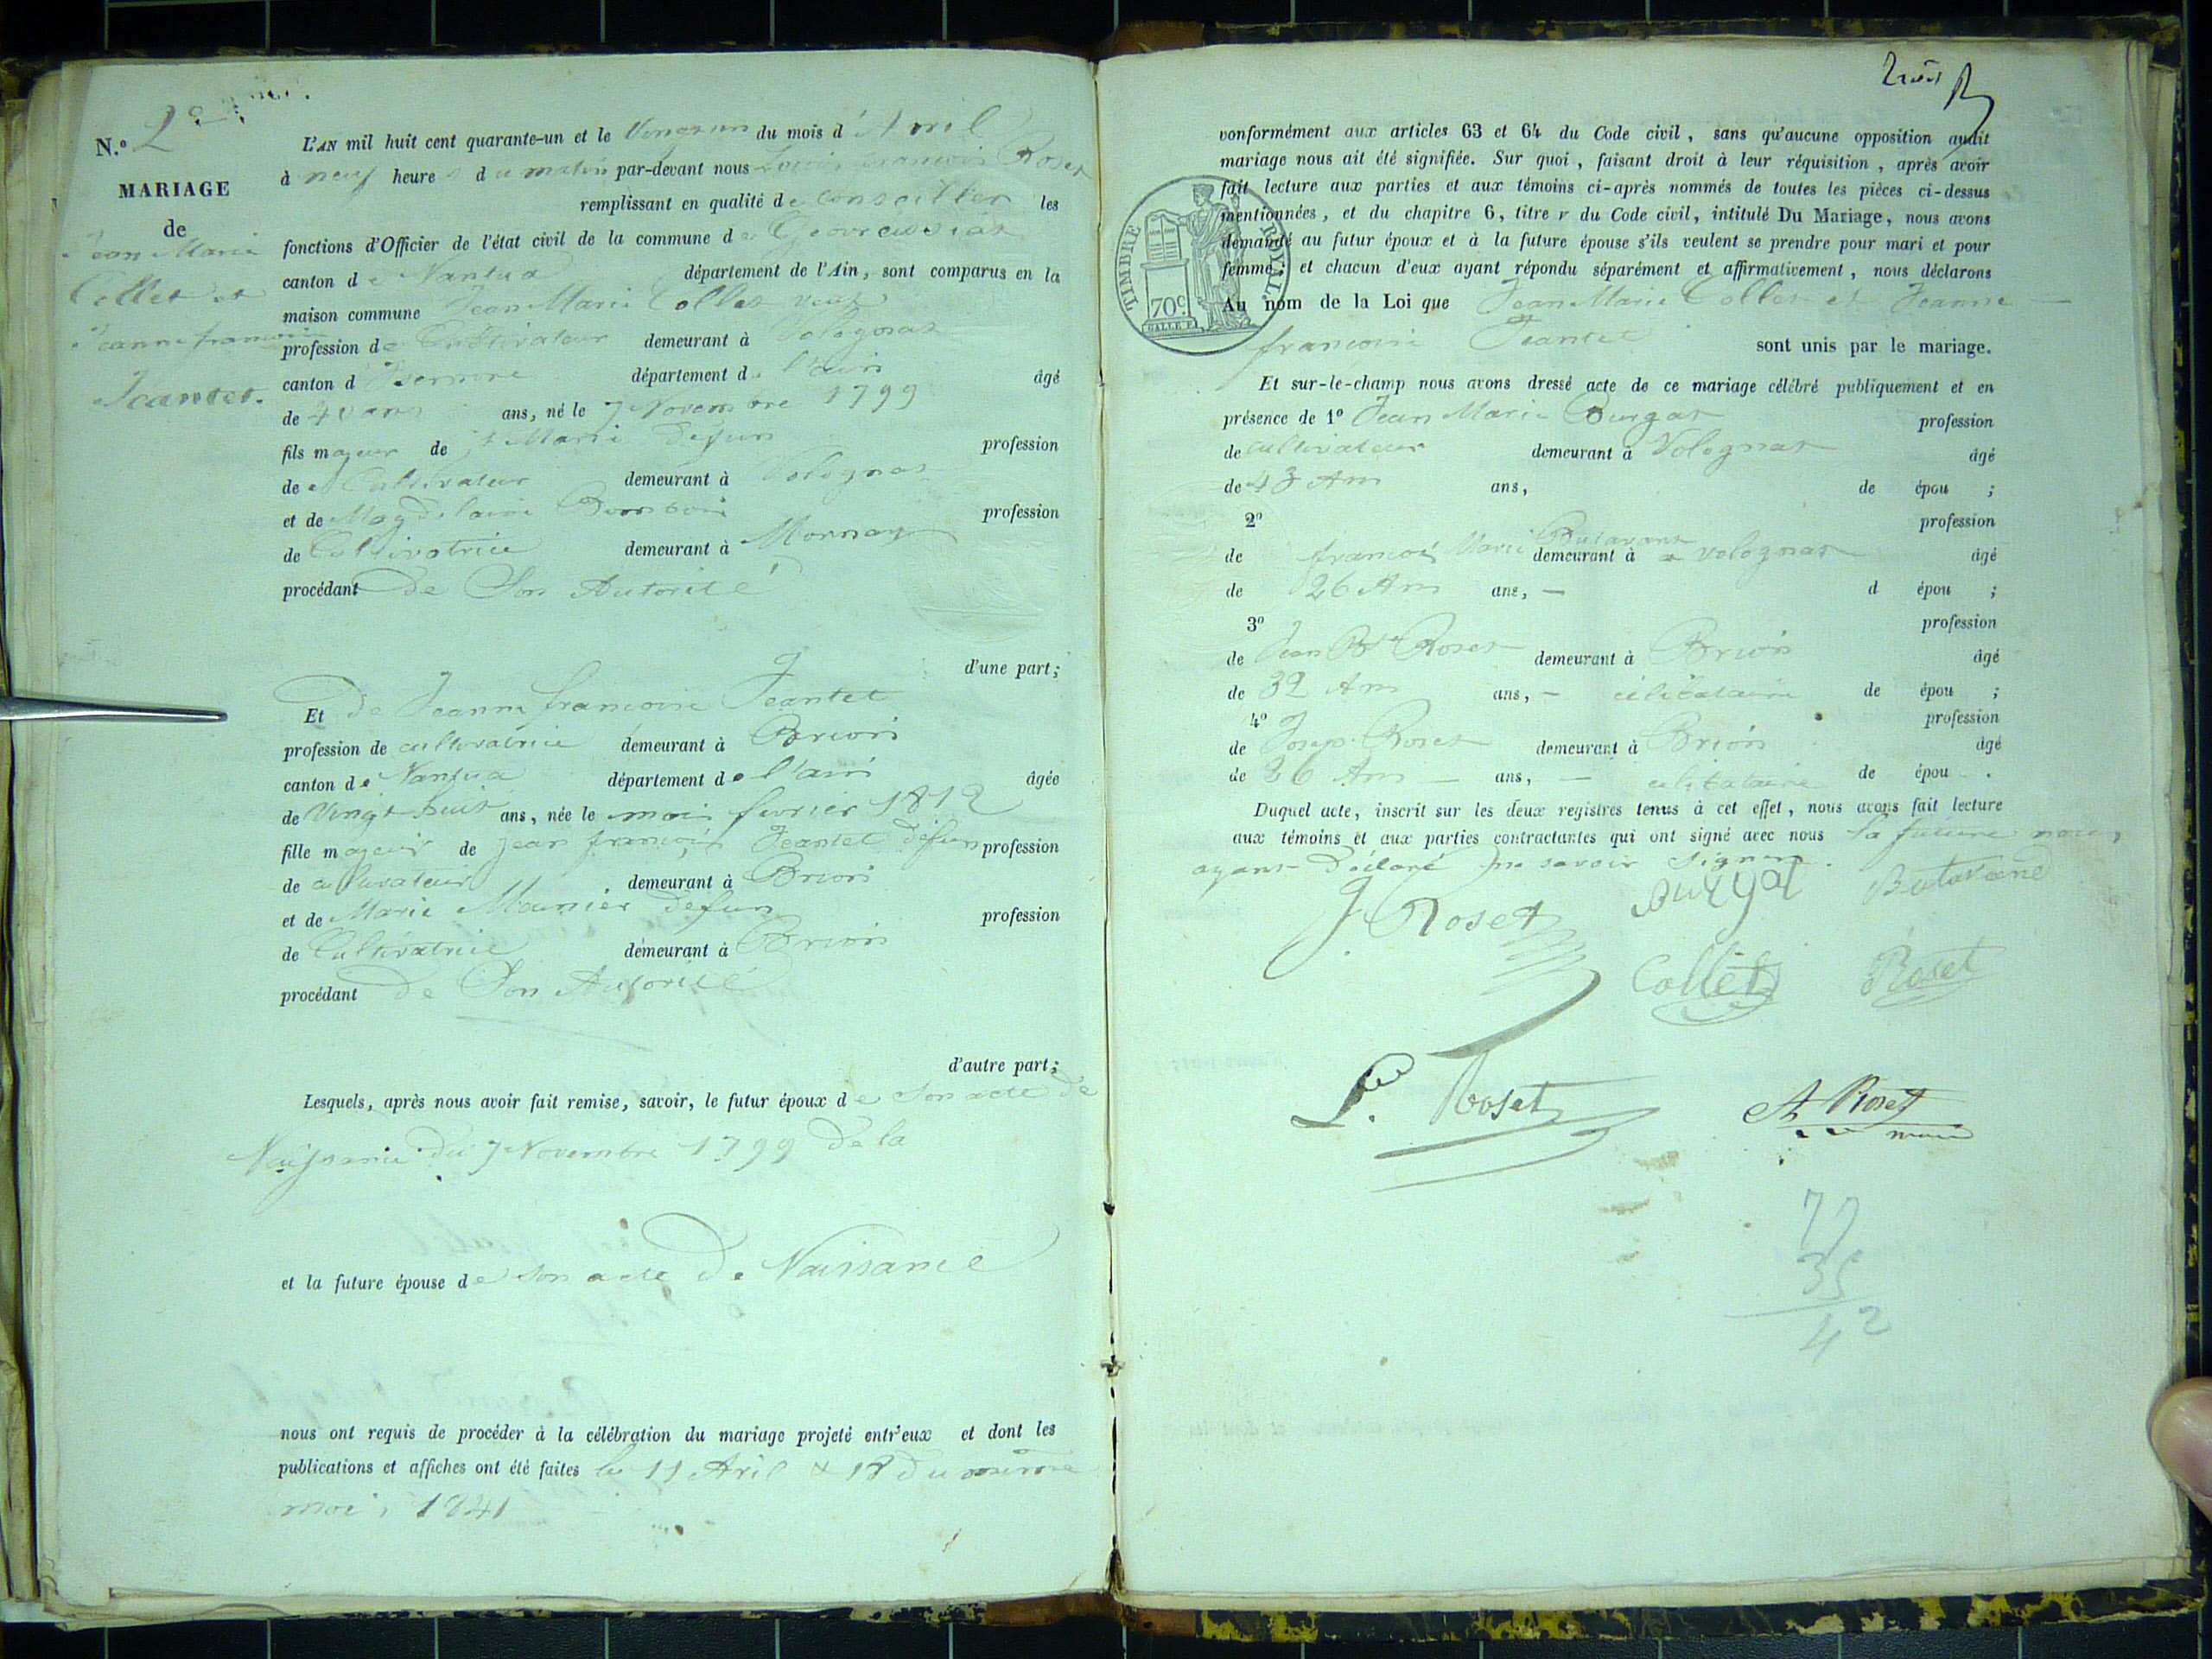 N.º 2e
MARIAGE
de
Jean Marie
Collet et
Jeanne françoise
Jeantet.
L'AN mil huit cent quarante-un et le Vingt un du mois d'Avril
à neuf heures du matin par-devant nous Louis françois Roset
remplissant en qualité de conseiller les
fonctions d'Officier de l'état civil de la commune de Geovreissiat
canton de Nantua département de l'Ain, sont comparus en la
maison commune Jean Marie Collet veuf
profession de Cultivateur demeurant à Volognat
canton d'Isernore département de l'ain âgé
de 40 ans ans, né le 7 Novembre 1799
fils majeur de J Marie defun profession
de Cultivateur demeurant à Volognat
et de Magdelaine profession
de Cultivatrice demeurant à Mornay
procédant De Son Autorité
d'une part;
Et de Jeanne françoise Jeantet
profession de cultivatrice demeurant à Brion
canton de Nantua département de l'ain âgée
de Vingt huit ans, née le mois fevrier 1812
fille majeur de jean françois Jeantet défun profession
de cultivateur demeurant à Brion
et de Marie Mounier défun profession
de Cultivatrice demeurant à Brion
procédant De Son Autorité
d'autre part;
Lesquels, après nous avoir fait remise, savoir, le futur époux de Son acte de
Naissance du 7 Novembre 1799 De la
et la future épouse de son acte De Naissance
nous ont requis de procéder à la célébration du mariage projeté entr'eux et dont les
publications et affiches ont été faites le 11 Avril & 18 du même
mois 1841
conformément aux articles 63 et 64 du Code civil, sans qu'aucune opposition audit
mariage nous ait été signifiée. Sur quoi, faisant droit à leur réquisition, après avoir
fait lecture aux parties et aux témoins ci-après nommés de toutes les pièces ci-dessus
mentionnées, et du chapitre 6, titre v du Code civil, intitulé Du Mariage, nous avons
demandé au futur époux et à la future épouse s'ils veulent se prendre pour mari et pour
femme; et chacun d'eux ayant répondu séparément et affirmativement, nous déclarons
Au nom de la Loi que Jean Marie Collet et Jeanne
françoise Jeantet sont unis par le mariage.
TIMBRE ROYAL
70c.
Et sur-le-champ nous avons dressé acte de ce mariage célébré publiquement et en
présence de 1º Jean Marie Burgat profession
de cultivateur demeurant à Volognat âgé
de 43 Ans ans, de épou ;
2º profession
de françois Marie Butavant demeurant à a volognat âgé
de 26 Ans ans, — d épou ;
3º profession
de Jean Bte Roset demeurant à Brion âgé
de 32 Ans ans, — célibataire de épou ;
4º profession
de Josep Roset demeurant à Brion âgé
de 36 Ans — ans, — celibataire de épou .
Duquel acte, inscrit sur les deux registres tenus à cet effet, nous avons fait lecture
aux témoins et aux parties contractantes qui ont signé avec nous la future non,
ayant Déclaré ne savoir signer.
J. Roset Burgat Butavand
Collet Roset
Ls. Roset A Roset
maire
77
35
42